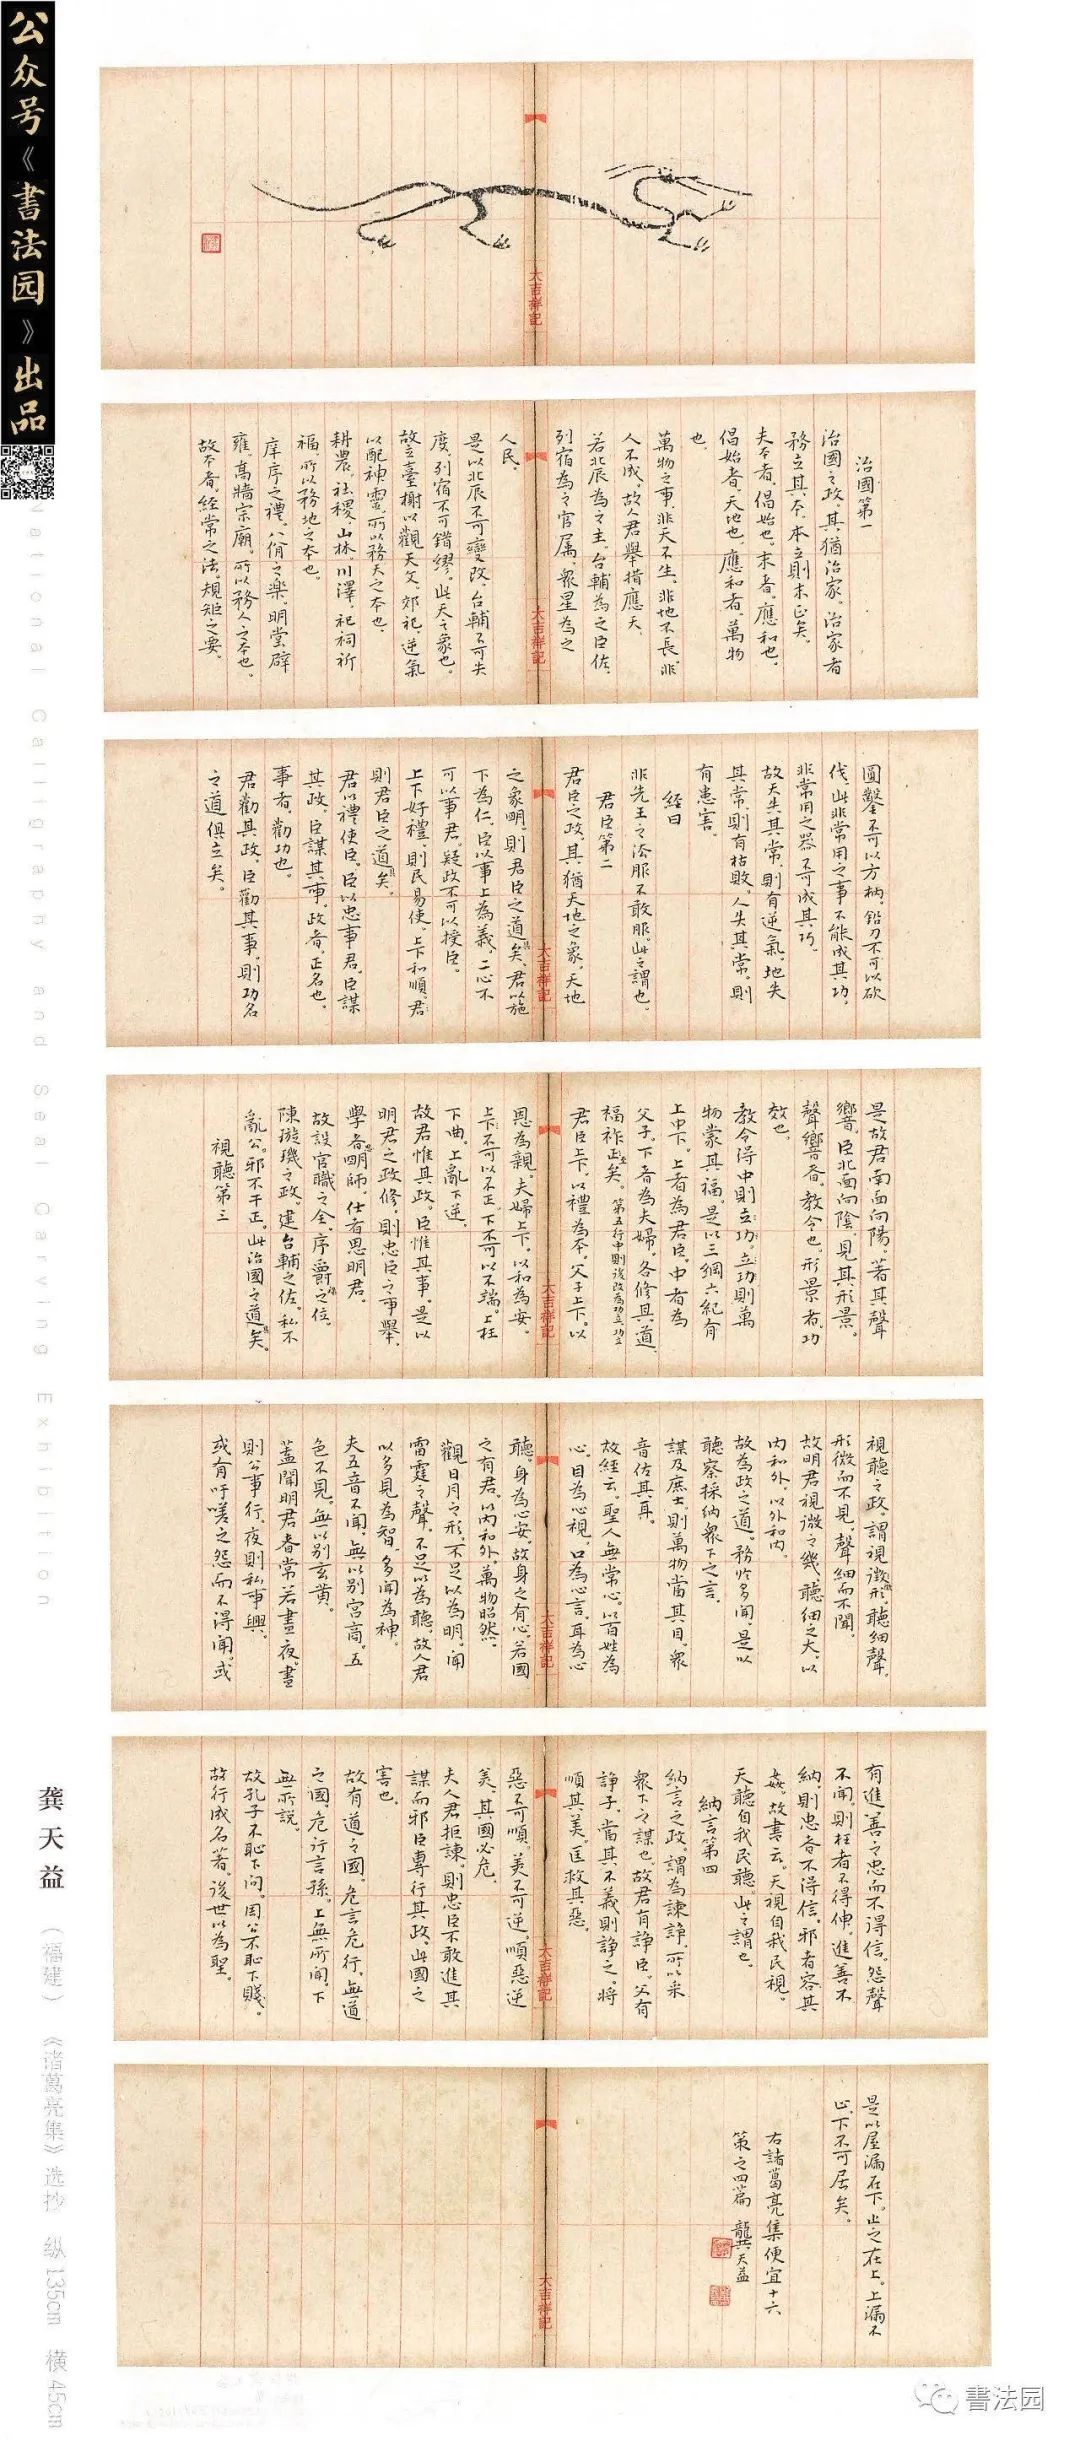 公众号《書法园》出品
National Calligraphy and Seal Carving Exhibition
龚天益 （福建） 《诸葛亮集》选抄 纵135cm 横45cm
大吉祥記
治國第一
治國之政，其猶治家。治家者
務立其本，本立則末正矣。
夫本者，倡始也。末者，應和也。
倡始者，天地也。應和者，萬物
也。
萬物之事，非天不生，非地不長，非
人不成。故人君舉措應天，
若北辰為之主，台輔為之臣佐，
列宿為之官属，衆星為之
大吉祥記
人民。
是以北辰不可變改，台輔不可失
度，列宿不可錯繆。此天之象也。
故立臺榭以觀天文，郊祀，逆氣
以配神靈，所以務天之本也。
耕農，社稷，山林川澤，祀祠祈
福，所以務地之本也。
庠序之禮，八佾之樂，明堂辟
雍，高牆宗廟，所以務人之本也。
故本者，經常之法，規矩之要。
圓鑿不可以方枘，鉛刀不可以砍
伐，此非常用之事不能成其功，
非常用之器不可成其巧。
故天失其常，則有逆氣，地失
其常，則有枯敗，人失其常，則
有患害。
經曰
非先王之法服不敢服。此之謂也。
君臣第二
君臣之政，其猶天地之象，天地
大吉祥記
之象明，則君臣之道具矣。君以施
下為仁，臣以事上為義。二心不
可以事君，疑政不可以授臣。
上下好禮，則民易使，上下和順，君
則君臣之道具矣。
君以禮使臣，臣以忠事君。臣謀
其政，臣謀其事。政者，正名也。
事者，勸功也。
君勸其政，臣勸其事，則功名
之道俱立矣。
是故君南面向陽，著其聲
響，臣北面向陰，見其形景。
聲響者，教令也。形景者，功
效也。
教令得中則立功，立功則萬
物蒙其福。是以三綱六紀有
上中下。上者為君臣，中者為
父子，下者為夫婦，各修其道
福祚至矣。第五行中則後改為功立功立
君臣上下，以禮為本，父子上下，以
大吉祥記
恩為親，夫婦上下，以和為安。
上不可以不正，下不可以不端。上枉
下曲，上亂下逆。
故君惟其政，臣惟其事，是以
明君之政修，則忠臣之事舉。
學者思明師，仕者思明君。
故設官職之全，序爵祿之位，
陳璇璣之政，建台輔之佐，私不
亂公，邪不干正，此治國之道具矣。
視聽第三
視聽之政，謂視微形，聽細聲。
形微而不見，聲細而不聞。
故明君視微之幾，聽細之大，以
內和外，以外和內。
故為政之道，務於多聞，是以
聽察採納衆下之言，
謀及庶士，則萬物當其目，衆
音佐其耳。
故經云，聖人無常心，以百姓為
心。目為心視，口為心言，耳為心
大吉祥記
聽，身為心安。故身之有心，若國
之有君，以內和外，萬物昭然。
觀日月之形，不足以為明，聞
雷霆之聲，不足以為聽，故人君
以多見為智，多聞為神。
夫五音不聞，無以別宮商，五
色不見，無以別玄黃。
蓋聞明君者常若晝夜，晝
則公事行，夜則私事興。
或有吁嗟之怨而不得聞，或
有進善之忠而不得信。怨聲
不聞，則枉者不得伸，進善不
納，則忠者不得信，邪者容其
姦。故書云，天視自我民視，
天聽自我民聽。此之謂也。
納言第四
納言之政，謂為諫諍，所以采
衆下之謀也。故君有諍臣，父有
諍子，當其不義則諍之，將
順其美，匡救其惡。
大吉祥記
惡不可順，美不可逆，順惡逆
美，其國必危。
夫人君拒諫，則忠臣不敢進其
謀，而邪臣專行其政，此國之
害也。
故有道之國，危言危行，無道
之國，危行言孫，上無所聞，下
無所說。
故孔子不恥下問，周公不恥下賤，
故行成名著，後世以為聖。
是以屋漏在下，止之在上。上漏不
止，下不可居矣。
右諸葛亮集便宜十六
策之四篇 龔天益
大吉祥記
書法园